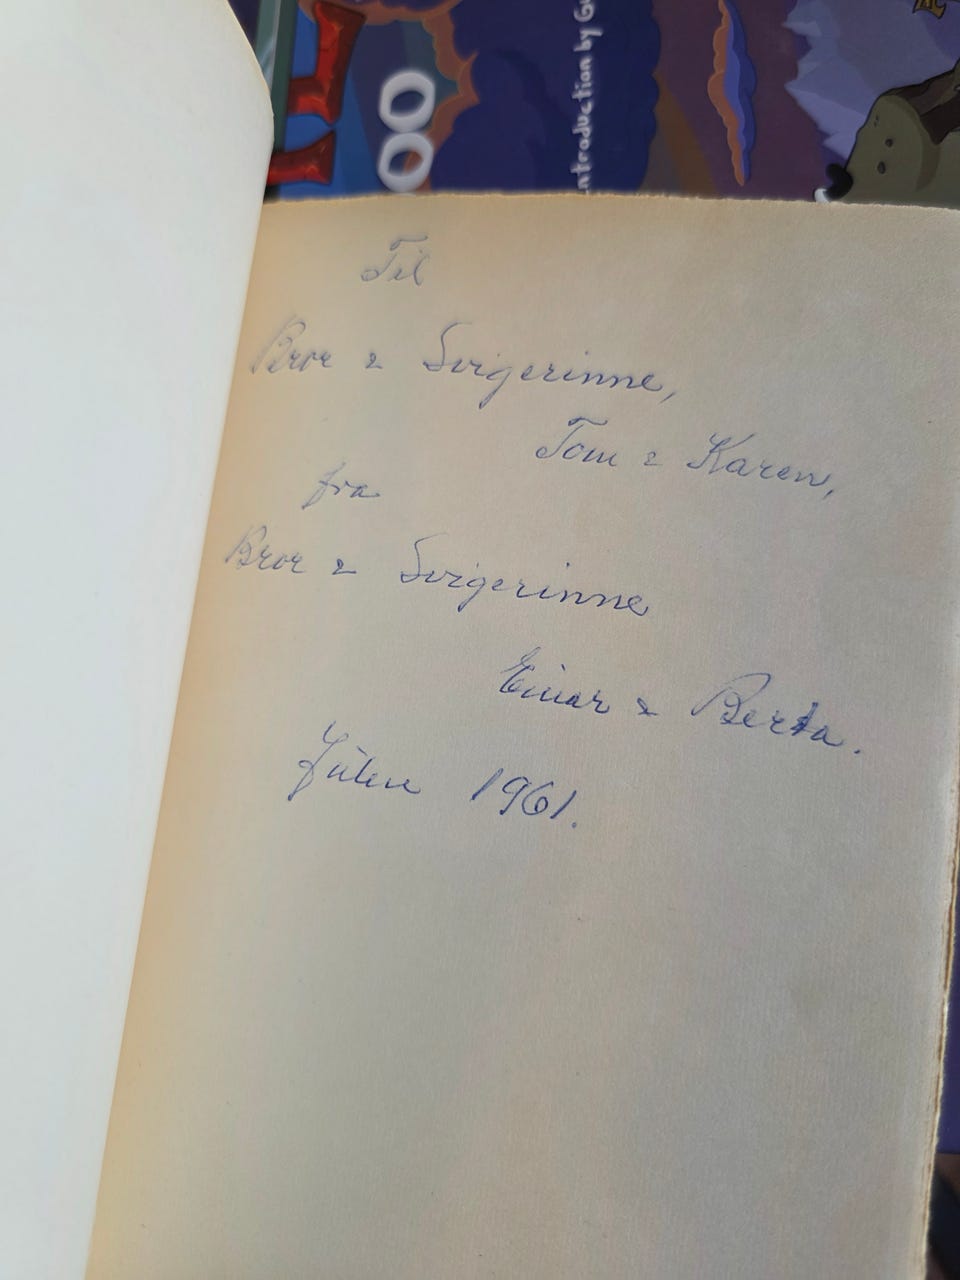 Til
Bror & Svigerinne,
Tom & Karen,
fra
Bror & Svigerinne
Einar & Berta.
Julen 1961.
OO
Introduction by Gu